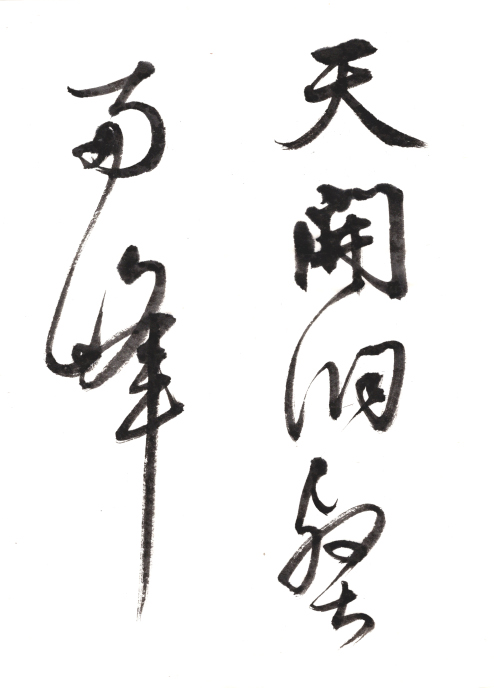 天開洞壑
兩峰